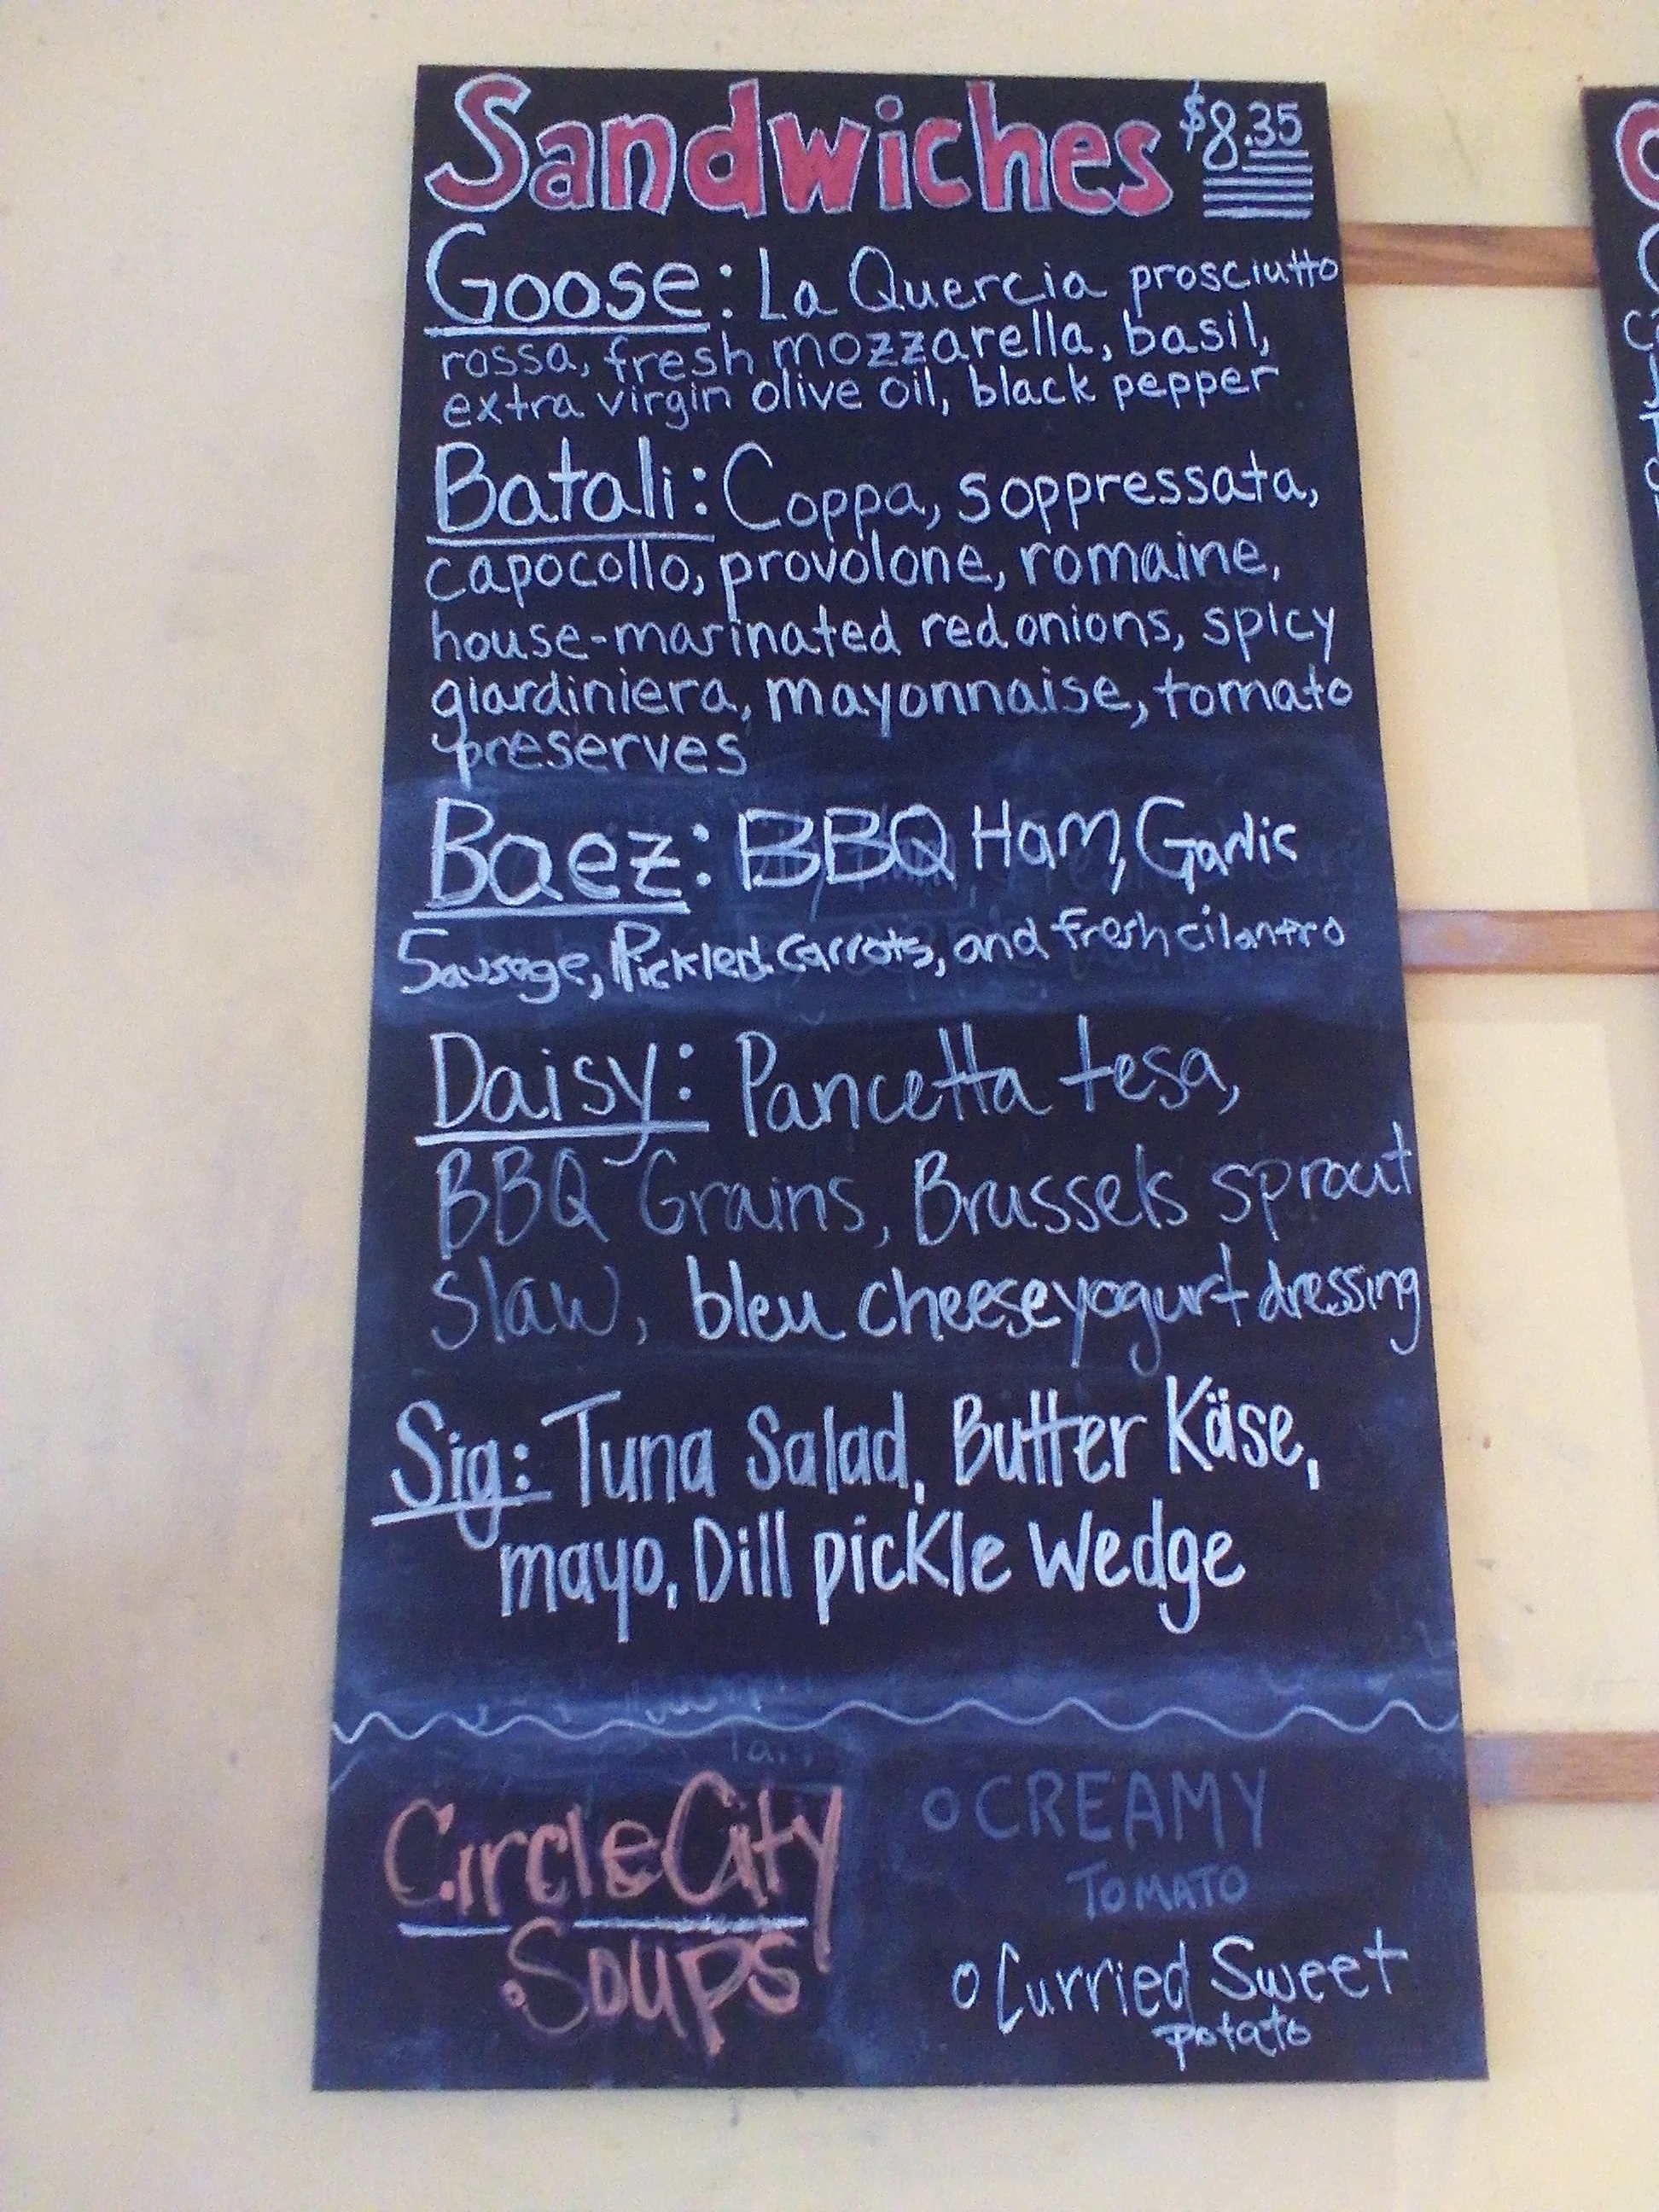 Sandwiches $8.35
Goose: La Quercia prosciutto
rossa, fresh mozzarella, basil,
extra virgin olive oil, black pepper
Batali: Coppa, soppressata,
capocollo, provolone, romaine,
house-marinated red onions, spicy
giardiniera, mayonnaise, tomato
preserves
Baez: BBQ Ham, Garlic
Sausage, Pickled Carrots, and fresh cilantro
Daisy: Pancetta tesa,
BBQ Grains, Brussels sprout
slaw, bleu cheese yogurt dressing
Sig: Tuna Salad, Butter Käse,
mayo, Dill pickle Wedge
Circle City
Soups
CREAMY
TOMATO
Curried Sweet
potato